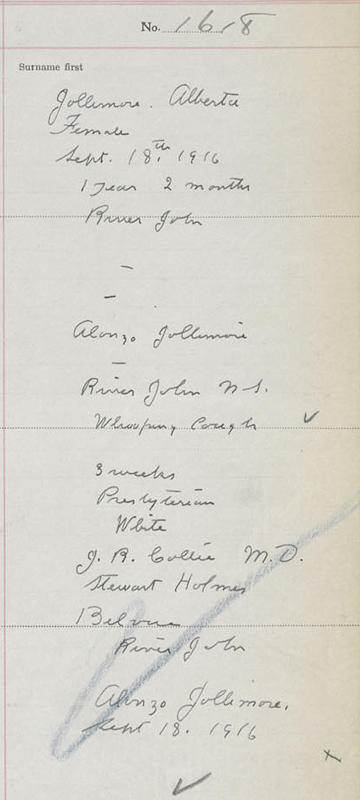 No. 1618
Surname first
Jollimore. Alberta
Female
Sept. 18th. 1916
1 Year 2 months
River John
–
–
Alonzo Jollimore
–
River John N.S.
Whooping Cough ✓
3 weeks
Presbyterian
White
J. R. Collie M.D.
Stewart Holmes
River John
Alonzo Jollimore.
Sept 18. 1916